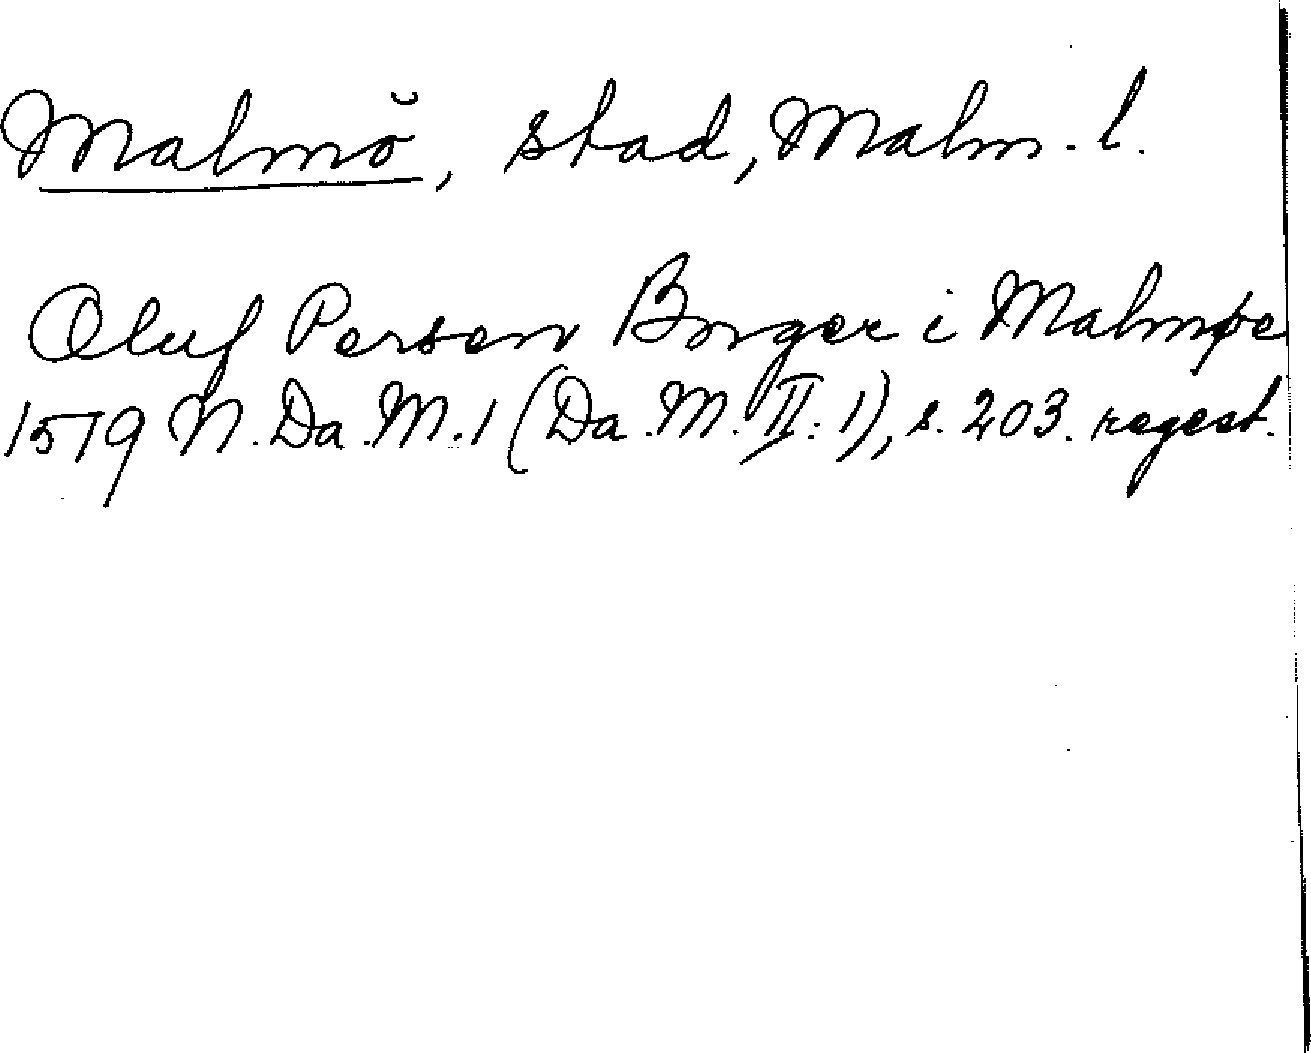 Malmö, stad, Malm. l.
Oluf Persen Borger i Malmøe
1579 N. Da. M. 1 (Da. M. II: 1), s. 203. regest.